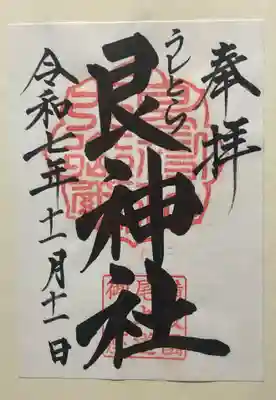 奉拝
うしとら
艮神社
令和七年十一月十一日